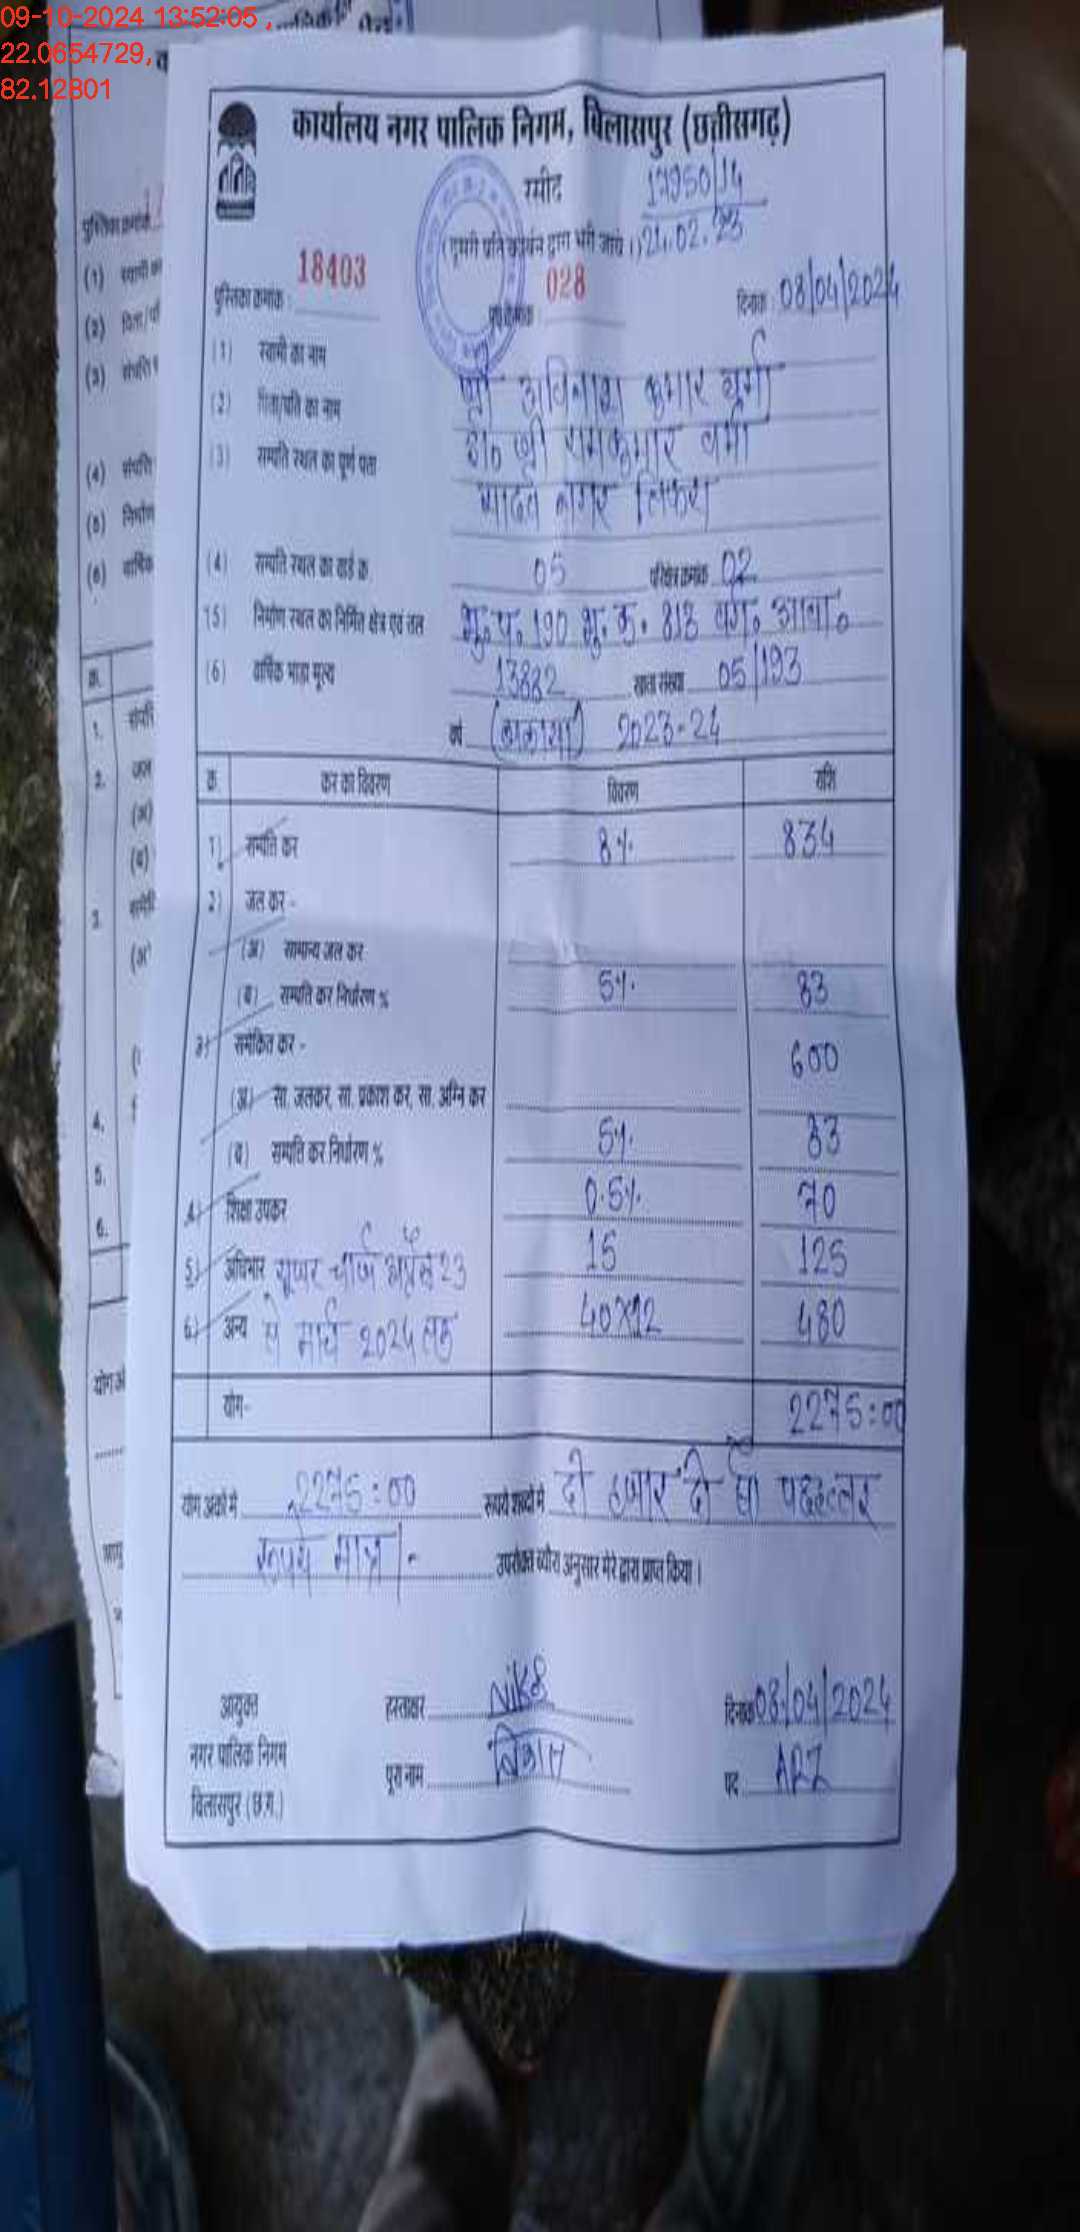 09-10-2024 13:52:05 ,
22.0654729,
82.12801
कार्यालय नगर पालिक निगम, बिलासपुर (छत्तीसगढ़)
रसीद 17950/14
(दूसरी प्रति कार्बन द्वारा भरी जाये।) 21.02.23
पुस्तिका क्रमांक : 18403 028 दिनांक : 08/04/2024
(1) स्वामी का नाम श्री अविनाश कुमार वर्मा
(2) पिता/पति का नाम डॉ० श्री रामकुमार वर्मा
(3) सम्पति स्थल का पूर्ण पता यादव नगर तिफरा
(4) सम्पति स्थल का वार्ड क्र 05 परिक्षेत्र क्रमांक 02
(5) निर्माण स्थल का निर्मित क्षेत्र एवं तल भू. प. 190 भू. क. 813 वर्ग. आवा.
(6) वार्षिक भाड़ा मूल्य 13882 खाता संख्या 05/193
वर्ष (बकाया) 2023-24
क्र. कर का विवरण विवरण राशि
1) सम्पति कर 8%. 834
2) जल कर -
(अ) सामान्य जल कर
(ब) सम्पति कर निर्धारण % 5%. 83
3) समेकित कर - 600
(अ) सा. जलकर, सा. प्रकाश कर, सा. अग्नि कर
(ब) सम्पति कर निर्धारण % 5%. 83
4) शिक्षा उपकर 0.5%. 70
5) अधिभार यूजर चार्ज अप्रैल 23 15 125
6) अन्य से मार्च 2024 तक 40X12 480
योग- 2275:00
योग अंको में 2275:00 रूपये शब्दों में दो हजार दो सौ पचहत्तर
रूपये मात्र/- उपरोक्त ब्योरा अनुसार मेरे द्वारा प्राप्त किया।
आयुक्त हस्ताक्षर दिनांक 08/04/2024
नगर पालिक निगम पूरा नाम विकास पद ARI
बिलासपुर (छ.ग.)